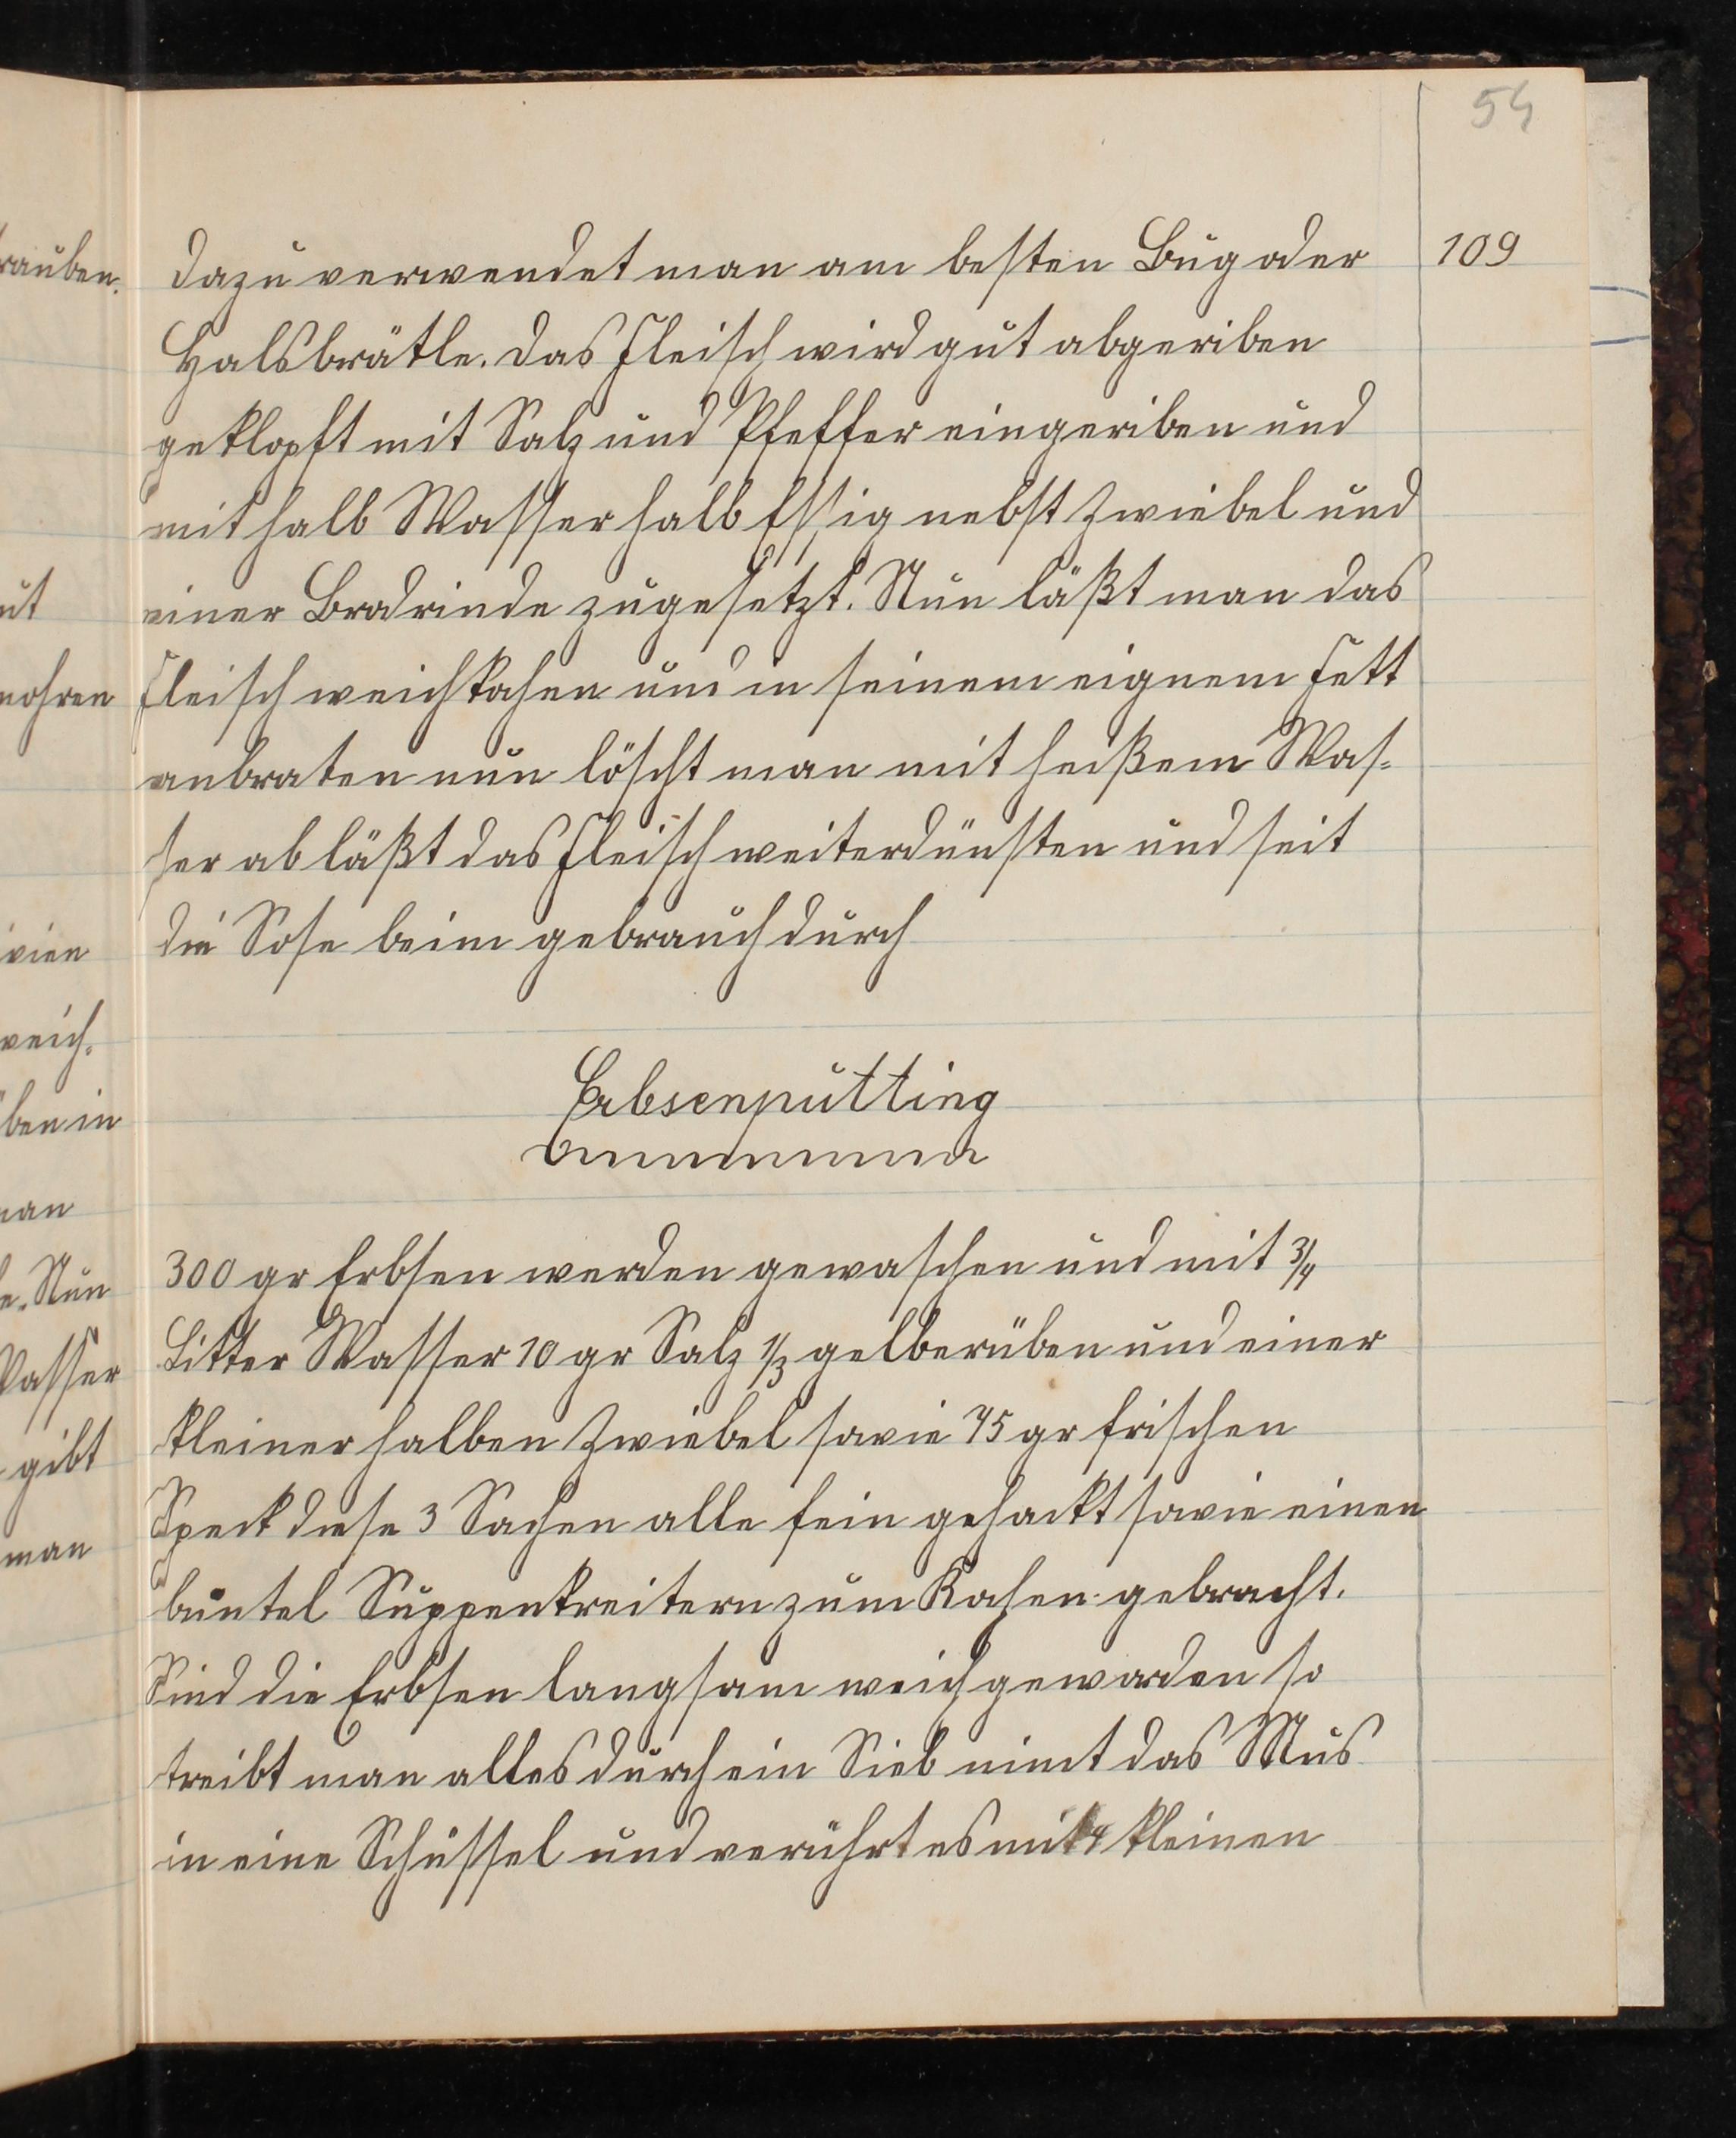 54
109
Dazu verwendet man am besten Bug oder
Halsbrätle. Das Fleisch wird gut abgeriben
geklopft mit Salz und Pfeffer eingeriben und
mit halb Wasser halb Essig nebst Zwiebel und
einer Brodrinde zugesetzt. Nun läßt man das
Fleisch weich kochen und in seinem eignem Fett
anbraten nun löscht man mit heißem Was-
ser ab läßt das Fleisch weiterdünsten und seit
die Sose beim gebrauch durch
Erbsenputting
300 gr Erbsen werden gewaschen und mit 3/4
Litter Wasser 10 gr Salz 1/2 gelberüben und einer
kleiner halben Zwiebel sowie 75 gr frischen
Speck diese 3 Sachen alle fein gehackt sowie einen
buntel Suppenkreitern zum Kochen gebracht.
Sind die Erbsen langsam weich geworden so
treibt man alles durch ein Sieb nimt das Mus
in eine Schüssel und verührt es mit 4 kleinen
rauben.
ut
ivien
weich-
ben in
man
Nun
Wasser
gibt
man